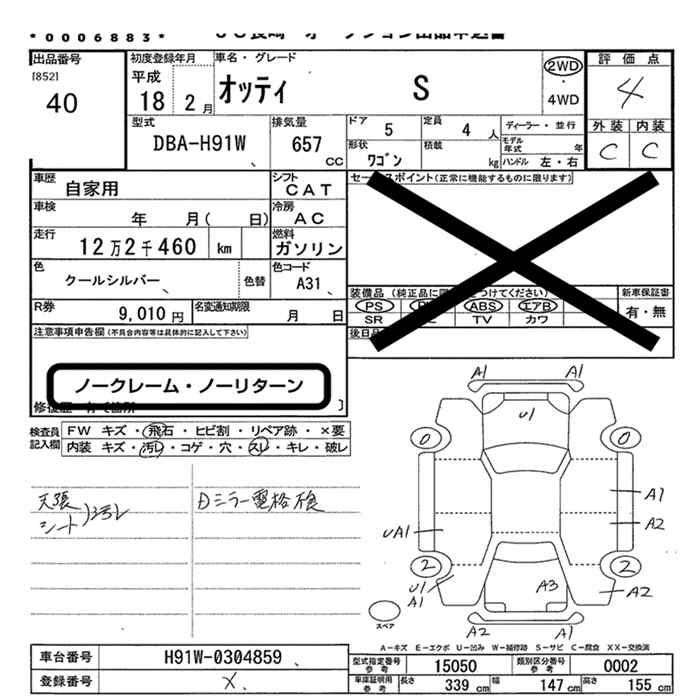 *0006883*
出品番号 初度登録年月 車名・グレード 評価点
[852] 40 平成 18 2月 オッティ S 2WD・4WD 4
型式 DBA-H91W 排気量 657 CC ドア 5 定員 4人 ディーラー・並行 外装 内装
形状 ワゴン 積載 kg モデル年式 年 ハンドル 左・右 C C
車歴 自家用 シフト CAT セールスポイント(正常に機能するものに限ります)
車検 年 月( 日) 冷房 AC
走行 12万2千460 km 燃料 ガソリン
色 クールシルバー 色替 色コード A31 装備品 新車保証書
R券 9,010円 名変通知期限 月 日 PS ABS エアB 有・無
SR TV カワ
注意事項申告欄(不具合内容等は具体的に記入して下さい)
ノークレーム・ノーリターン
検査員記入欄 FW キズ・飛石・ヒビ割・リペア跡・×要
内装 キズ・汚レ・コゲ・穴・スレ・キレ・破レ
天張 Dミラー電格不良
シート)汚レ
A1 A1
U1
0 0
A1
A2
UA1
2 2
U1 A1 A3 A2
スペア A2 A1
A-キズ E-エクボ U-凹み W-補修跡 S-サビ C-腐食 XX-交換済
車台番号 H91W-0304859 型式指定番号参考 15050 類別区分番号参考 0002
登録番号 × 車庫証明用参考 長さ 339cm 幅 147cm 高さ 155cm